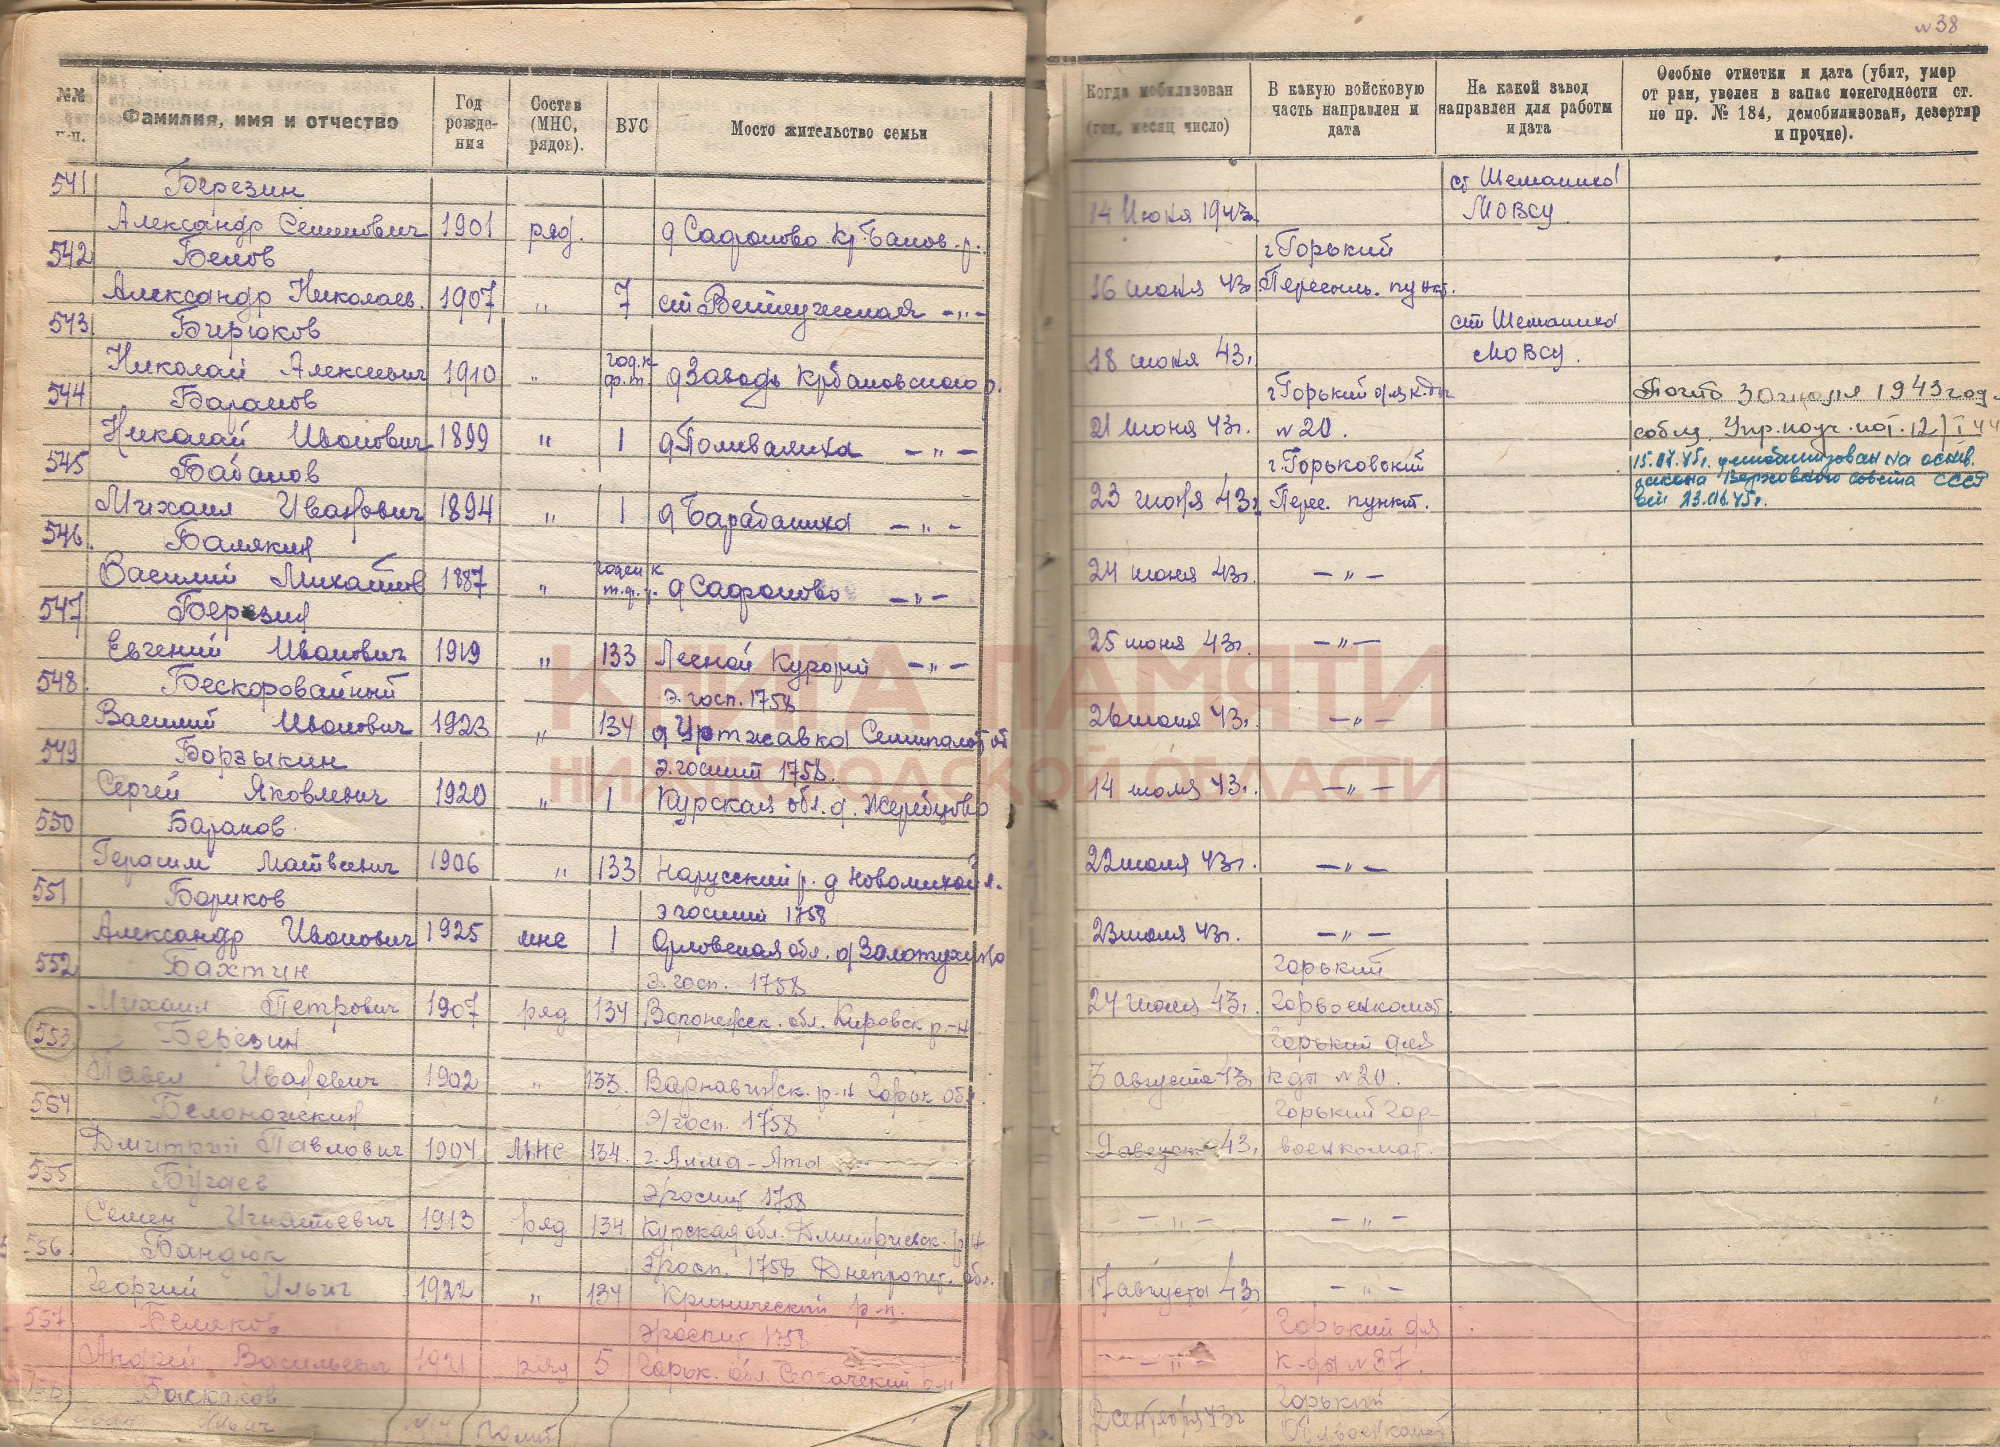 № 38
№№ п.п.
Фамилия, имя и отчество
Год рождения
Состав (МНС, рядов).
ВУС
Место жительство семьи
Когда мобилизован (год, месяц число)
В какую войсковую часть направлен и дата
На какой завод направлен для работы и дата
Особые отметки и дата (убит, умер от ран, уволен в запас по негодности ст. по пр. № 184, демобилизован, дезертир и прочие).
541 Березин ст Шеманиха
Александр Семенович 1901 ряд. д Сафоново Кр.-Баков. р. 14 Июня 1943г. МОВСУ.
542 Белов г Горький
Александр Николаев. 1907 " 7 ст Ветлужская — " — 16 июня 43г Пересыль. пункт.
543 Бирюков ст Шеманиха
Николай Алексеевич 1910 " год. к ф. т д Заводь Крбаковского р. 18 июня 43г. МОВСУ.
544 Баранов г Горький для к.
Николай Иванович 1899 " 1 д Поливаниха — " — 21 июня 43г. № 20.
Погиб 30 июля 1943 год.
545 Бабанов г. Горьковский
Михаил Иванович 1894 " 1 д Барабаниха — " — 23 июня 43г Перес. пункт.
15.07.45г. демобилизован на основ. закона Верховного совета СССР от 23.06.45г.
546. Балякин
Василий Михайлов 1887 " годен к т.ф. д Сафоново — " — 24 июня 43г. — " —
547 Березин
Евгений Иванович 1919 " 133 Лесной Курорт — " — 25 июня 43г. — " —
548. Бескоровайный Э. госп. 1758
Василий Иванович 1923 " 134 Семипалат об 26 июня 43г. — " —
549 Борзыкин Э. госпит 1758.
Сергей Яковлевич 1920 " 1 Курская обл. д. Жеребцово 14 июля 43г. — " —
550 Баранов
Герасим Матвеевич 1906 " 133 р. д 22 июля 43г. — " —
551 Бориков Э госпит 1758
Александр Иванович 1925 мнс 1 Орловская обл. д Золотухино 23 июля 43г. — " —
552 Бахтин Э. госп. 1758 Горький
Михаил Петрович 1907 ряд 134 Воронежск. обл. Кировск р-н 24 июля 43г. Горвоенкомат.
553 Березин Горький для
Павел Иванович 1902 " 133. Варнавинск. р-н Горьк обл. 3 августа 43 к-ды № 20.
554 Белоножкин Э/госп. 1758 Горький Гор-
Дмитрий Павлович 1904 МНС 134. г. Алма-Ата 9 август 43г. военкомат.
555 Бугаев Э/госпит 1758
Семен Игнатьевич 1913 ряд 134 Курская обл. Дмитриевск. р-н — " — — " —
556. Бандюк Э/госп. 1758 Днепропет. обл.
Георгий Ильич 1922 " 134 р-н. 17 августа 43г — " —
557 Беляков Э/госпит 1758 Горький для
Андрей Васильевич 1921 ряд 5 Горьк. обл. Сергачский р-н — " — к-ды № 37.
Баскаков Горький
Ильич 2 сентября 43г Облвоенкомат
КНИГА ПАМЯТИ
НИЖЕГОРОДСКОЙ ОБЛАСТИ